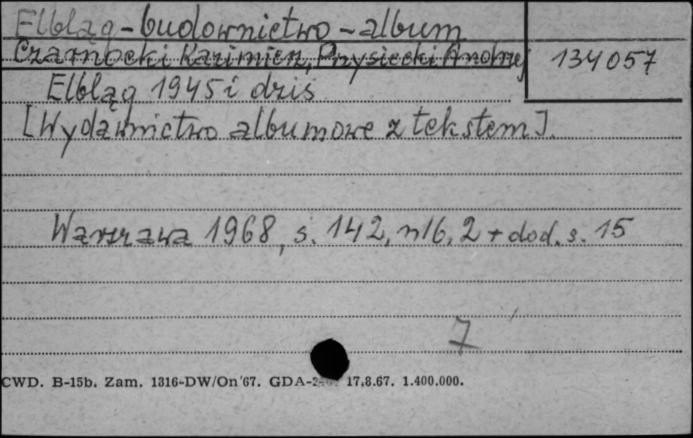 Elbląg - budownictwo - album
Czarnocki Kazimierz, Przysiecki Andrzej
134057
Elbląg 1945 i dziś
[Wydawnictwo albumowe z tekstem].
Warszawa 1968, s. 142, nlb. 2 + dod. s. 15
7
CWD. B-15b. Zam. 1316-DW/On'67. GDA- 17.8.67. 1.400.000.